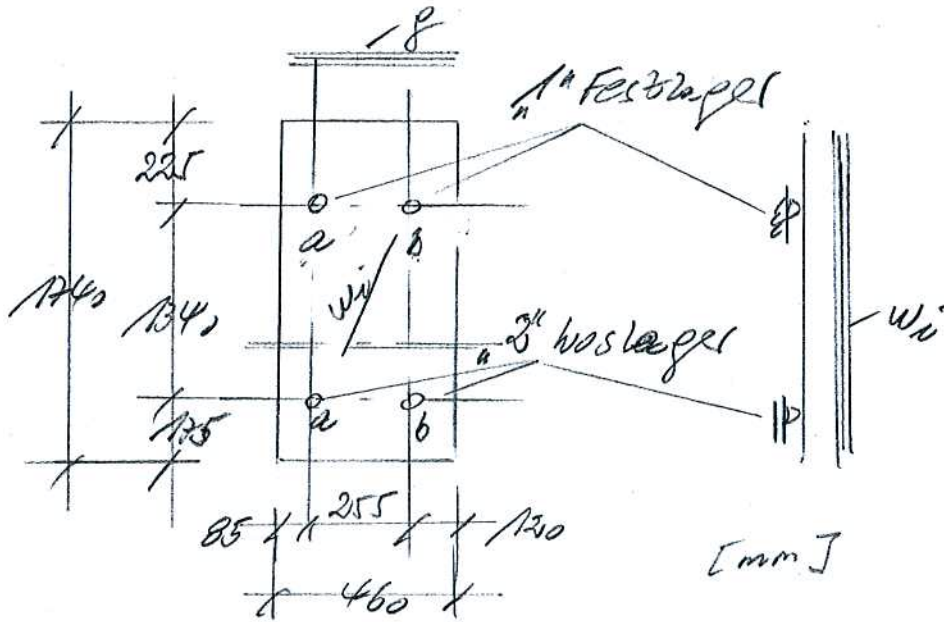 g
„1“ Festlager
225
a b
1740
1340
wi
wi
„2“ Loslager
175
a b
85 255 120
460
[mm]